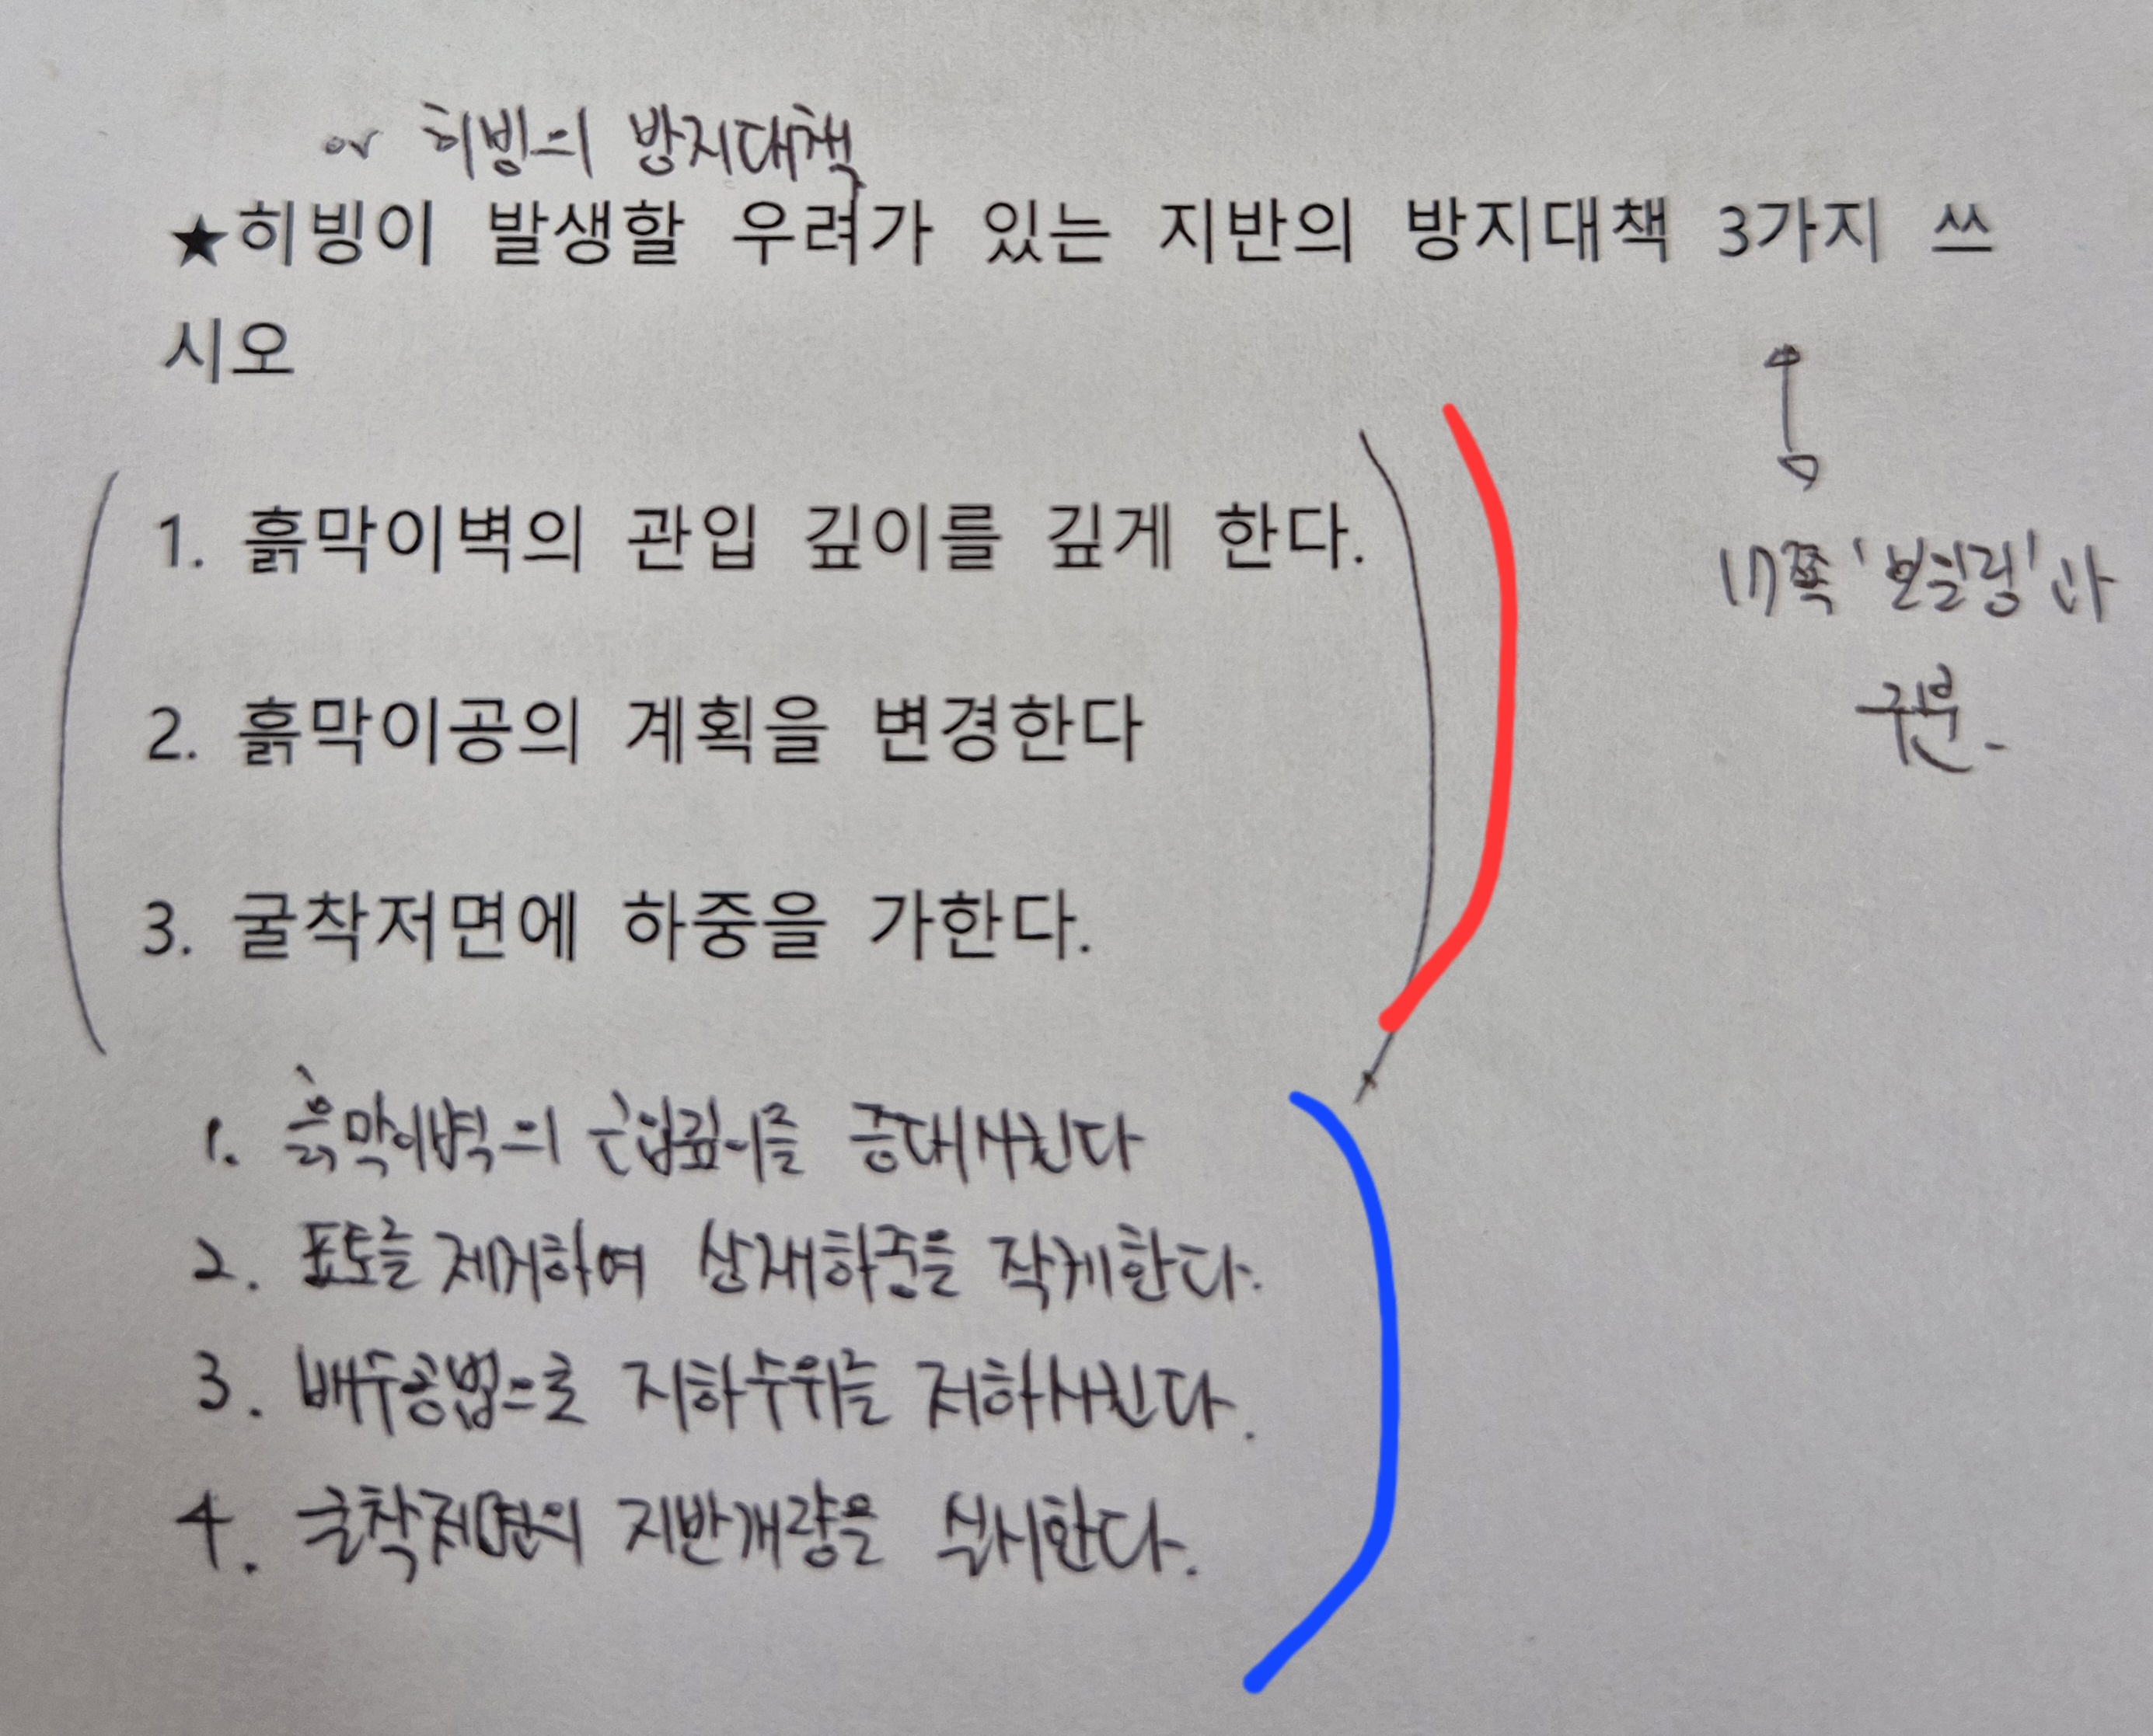 or 히빙의 방지대책
★히빙이 발생할 우려가 있는 지반의 방지대책 3가지 쓰
시오
1. 흙막이벽의 관입 깊이를 깊게 한다.
2. 흙막이공의 계획을 변경한다
3. 굴착저면에 하중을 가한다.
17쪽 '보일링'과
구분.
1. 흙막이벽의 근입깊이를 증대시킨다
2. 표토를 제거하여 산재하중을 작게한다.
3. 배수공법으로 지하수위를 저하시킨다.
4. 굴착저면의 지반개량을 실시한다.